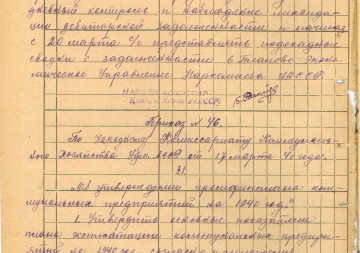 дневный контроль и наблюдение ликвида-
ции дебиторской задолженности и начиная
с 20 марта с/г представлять подекадные
сводки о задолженности в Планово Эконо-
мическое Управление Наркомхоза
Приказ № 46.
По Народному Комиссариату Коммуналь-
ного Хозяйства от 17 марта 40 года.
§1.
"Об утверждении промфинплана ком-
мунальных предприятий на 1940 год."
1. Утвердить основные показатели
плана эксплоатации коммунальных предпри-
ятий на 1940 год